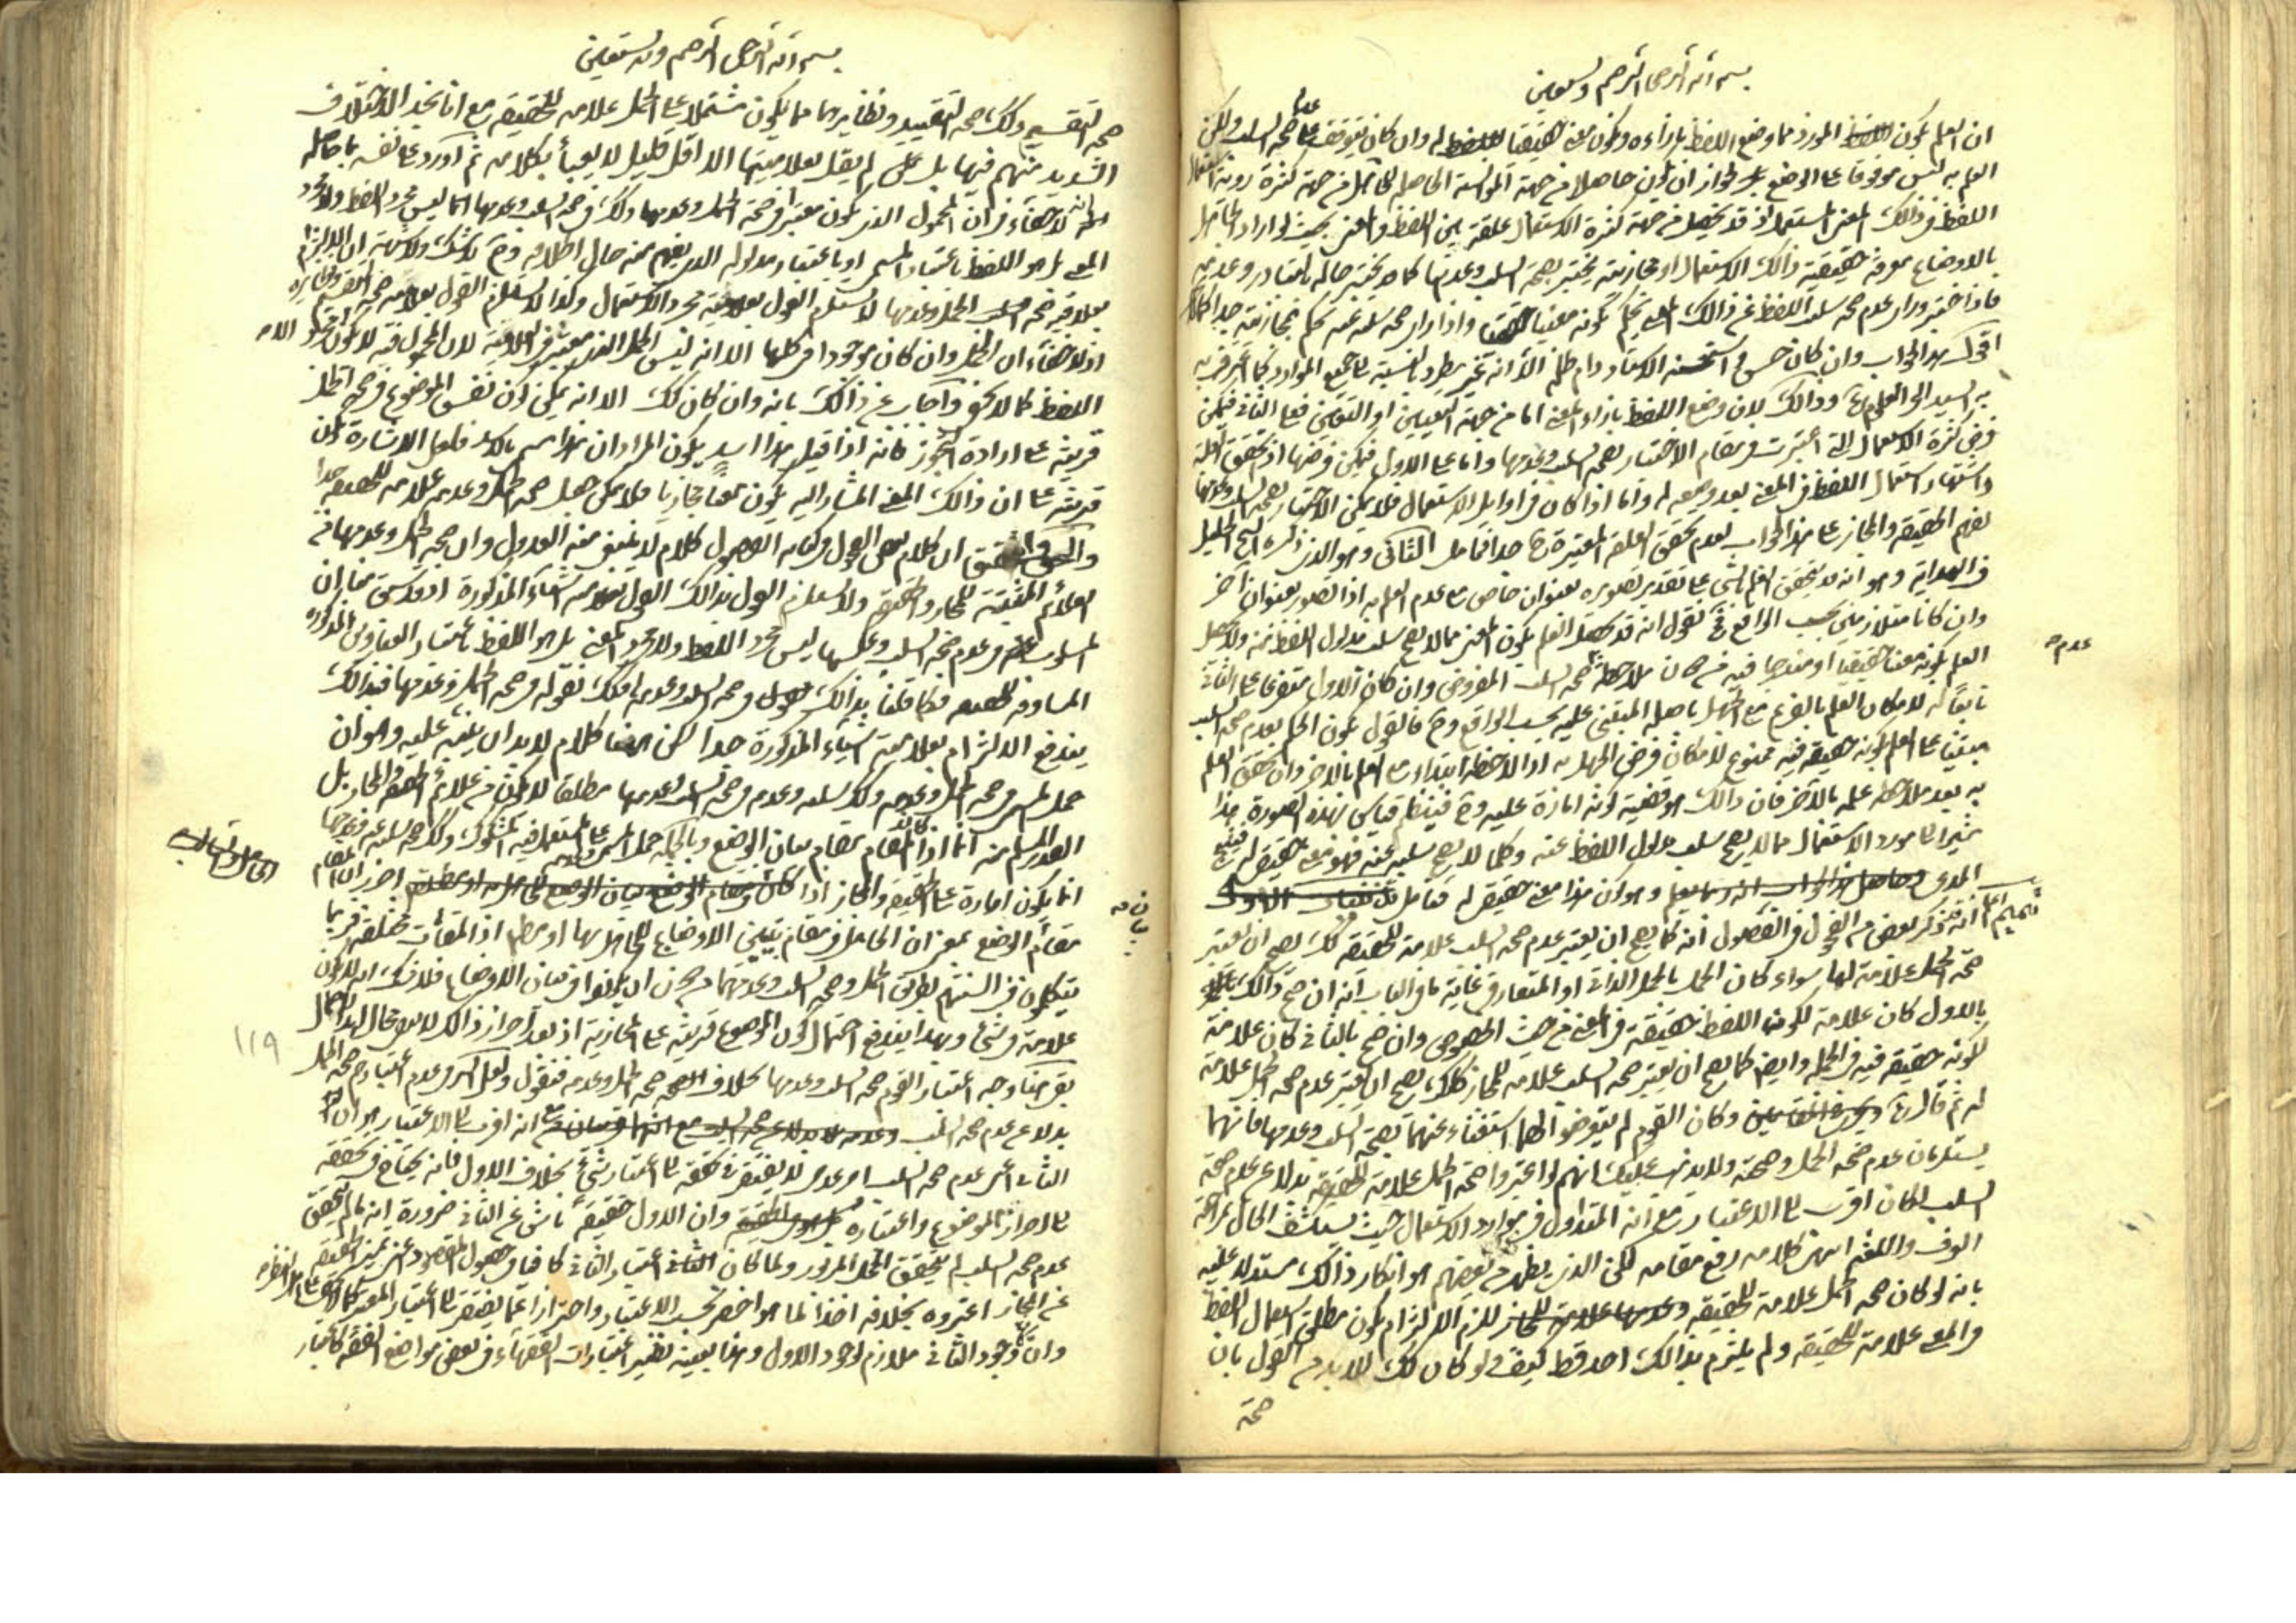 بسم الله الرحمن الرحيم وبه نستعين
ان العلم بكون المورد مما وضع اللفظ بازاءه وكونه معنى حقيقيا له وان كان يتوقف على صحة السلب ولكن
العلم به ليس موقوفا على الوضع لجواز ان يكون حاصلا من جهة الموانسة الحاصلة للجاهل من جهة كثرة
اللفظ في ذلك المعنى المستعمل اذ قد يحصل من جهة كثرة الاستعمال علقة بين اللفظ والمعنى بحيث لو اراد الجاهل
بالاوضاع معرفة حقيقية ذلك الاستعمال او مجازيته يختبر بصحة السلب وعدمها كما يختبر حاله بالتبادر وعدمه
فاذا اختبر وراى عدم صحة سلب اللفظ عن ذلك المعنى يحكم بكونه معنى حقيقيا واذا راى صحة سلبه عنه يحكم بمجازيته
اقول هذا الجواب وان كان حسن استحسنه الاستاد دام ظله الا انه غير مطرد بالنسبة الى جميع الموارد كما اعترف به
وذلك لان وضع اللفظ بازاء المعنى اما من جهة التعيين او التعين فعلى الثاني فيمكن
فرض كثرة الاستعمال التي اعتبرت في مقام الاختبار بصحة السلب وعدمها واما على الاول فيمكن فرضها اذ تحقق العلقة
واشتهار استعمال اللفظ في المعنى بعد وضعه له واما اذا كان في اوايل الاستعمال فلا يمكن الاختبار بصحة السلب وعدمها
لفهم الحقيقة والمجاز على هذا الجواب لعدم تحقق العلقة المعتبرة الثاني وهو الذي ذكره الشيخ الجليل
في الهداية وهو انه قد يتحقق العلم بالشيء على تقدير تصوره بعنوان خاص مع عدم العلم به اذا تصور بعنوان آخر
وان كانا متلازمين بحسب الواقع نقول انه قد يحصل العلم بكون المعنى مما لا يصح سلب مدلول اللفظ عنه ولا يحصل
العلم بكونه معنى حقيقيا او مندرجا فيه من دون ملاحظة صحة السلب المفروض وان كان الاول متفرعا على الثاني
عدم صح
تابعا له لامكان العلم بالفرع مع الجهل باصله المبتني عليه بحسب الواقع وح فالقول بكون الحكم بعدم صحة السلب
مبتنيا على العلم بكونه حقيقة فيه ممنوع لامكان فرض الجهل به اذا لاحظه ابتداء مع العلم بالاخر وان تحقق العلم
به بعد ملاحظة علمه بالآخر فان ذلك هو قضية كونه امارة عليه وح فينتظم قياس بهذه الصورة هذا
مشيرا الى مورد الاستعمال مما لا يصح سلب مدلول اللفظ عنه وكلما لا يصح سلبه عنه فهو معنى حقيقي له فينتج
المدعى وهو ان هذا معنى حقيقي له فتامل
تتميم اعلم انه قد ذكر بعض من الفحول في الفصول انه كما يصح ان يعتبر عدم صحة السلب علامة للحقيقة كك يصح ان تعتبر
صحة الحمل علامة لها سواء كان الحمل بالحمل الذاتي او المتعارف غاية ما في الباب انه ان صح ذلك
بالاول كان علامة لكون اللفظ حقيقة في المعنى من حيث الخصوص وان صح بالثاني كان علامة
لكونه حقيقة فيه في الجملة وايضا كما يصح ان يعتبر صحة السلب علامة للمجاز كذلك يصح ان يعتبر عدم صحة الحمل علامة
له ثم قال وكان القوم لم يتعرضوا لهما استغناء عنهما بصحة السلب وعدمها فانهما
يستلزمان عدم صحة الحمل وصحته ولا يذهب عليك انهم لو اعتبروا صحة الحمل علامة للحقيقة بدلا عن عدم صحة
السلب لكان اقرب الى الاعتبار مع انه المتداول في موارد الاستعمال حيث يستكشف الحال بمراجعة
العرف واللغة انتهى كلامه رفع مقامه لكن الذي يظهر من بعضهم هو انكار ذلك مستدلا عليه
بانه لو كان صحة الحمل علامة للحقيقة للزم الالتزام بكون مطلق استعمال اللفظ
في المعنى علامة للحقيقة ولم يلتزم بذلك احد قط كيف ولو كان كك للابد من القول بان
صحة
بسم الله الرحمن الرحيم وبه نستعين
صحة التقسيم وكك صحة التقييد ونظايرهما مما يكون مشتملا على الحمل علامة للحقيقة مع انا نجد الاختلاف
الشديد منهم فيها بل لم يقل بعلاميتها الا اقل قليل لا يعبأ بكلامه ثم اورد على نفسه بما حاصله
انه لا خفاء في ان المحمول الذي يكون معتبرا في صحة الحمل وعدمها وكك في صحة السلب وعدمها انما ليس مجرد اللفظ ولا مجرد
المعنى بل هو اللفظ باعتبار المسمى او باعتبار مدلوله الذي يفهم منه حال اطلاقه وح لا شك ولا شبهة ان الالتزام
بعلامية صحة الحمل وعدمها لا يستلزم القول بعلامية مجرد الاستعمال وكذا لا يستلزم القول بعلامية صحة التقسيم ونظايره
اذ لا خفاء ان الحمل وان كان موجودا في كلها الا انه ليس الحمل الذي معتبر في العلامة لان المحمول فيه لا يكون
اللفظ كما لا يخفى واجاب عن ذلك بانه وان كان كك الا انه يمكن كون نفس الموضوع في صحة الحمل
قرينة على ارادة التجوز فانه اذا قيل هذا اسد يكون المراد ان هذا مسمى بالاسد فلعل الاشارة تكون
قرينة على ان ذلك المعنى المشار اليه يكون معنا مجازيا فلا يمكن جعل صحة الحمل وعدمه علامة للحقيقة هذا
والتحقيق ان كلام بعض الفحول في كتابه الفصول كلام لا ينبغي منه العدول وان صحة الحمل وعدمها من
العلائم المثبتة للمجاز والحقيقة ولا يستلزم القول بذلك القول بعلامية الاشياء المذكورة اذ قد سبق منا ان
المسلوب في عدم صحة السلب وعكسها ليس مجرد اللفظ ولا مجرد المعنى بل هو اللفظ باعتبار العناوين المذكورة
المساوقة للحقيقة فكما قلنا بذلك في صحة السلب وعدمها فكك نقوله في صحة الحمل وعدمها فبذلك
يندفع الالتزام بعلامية الاشياء المذكورة هذا لكن هنا كلام لا بد ان ينبه عليه وهو ان
حمل المسمى وصحة الحمل وعدمه وكك سلبه وعدمه وصحة السلب وعدمها مطلقا لا يكون من علائم الحقيقة والمجاز بل
القدر المسلم منه انما اذا كان المقام مقام بيان الوضع وبالجملة حمل المسمى على المستعمل فيه المشكوك وكك صحة سلبه عنه وعدمها
انما يكون امارة على الحقيقة والمجاز اذا احرز ان المقام
بيان صح
مقام الوضع بمعنى ان الحامل في مقام تبيين الاوضاع للجاهل بها او مطم اذ المقامات مختلفة فربما
يتكلمون في السنتهم بطريق الحمل وصحة السلب وعدمهما من دون ان يكونوا في بيان الاوضاع فلا فك انه لا يكون
علامة في شيء وبهذا يندفع احتمال كون الموضوع قرينة على المجازية اذ بعد احراز ذلك لا يبقى مجال لهذا الاحتمال
بقي هنا وجه اعتبار القوم صحة السلب وعدمها بخلاف صحة الحمل وعدمه فنقول ولعل السر في عدم اعتبارهم صحة الحمل
بدلا عن عدم صحة السلب مع انه اقرب الى الاعتبار هو ان
الثاني اعني عدم صحة السلب امر عدمي لا يفتقر في تحققه الى اعتبار شيء بخلاف الاول فانه يحتاج في تحققه
الى احراز الموضوع واعتباره وان الاول حقيقة ناش عن الثاني ضرورة انه ما لم يتحقق
عدم صحة السلب لم يتحقق الحمل المزبور ولما كان اعتبار الثاني كافيا في حصول المقصود اعني تميز الحقيقة
عن المجاز اعتبروه بخلافه اخذا لما هو اخصر بحسب الاعتبار واحترازا عما يفتقر الى اعتبار المعتبر
وان كان وجود الثاني ملازم لوجود الاول وهذا بعينه نظير اعتبارات الفقهاء في بعض مواضع الفقه كاعتبار
١١٩